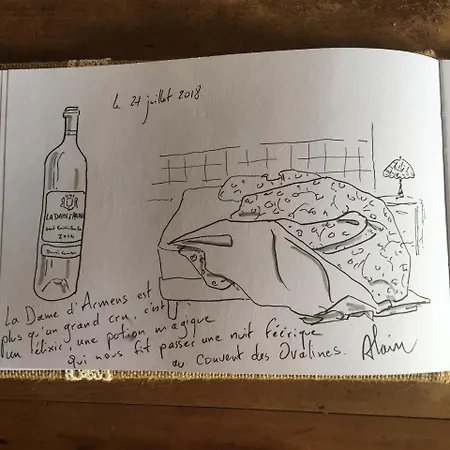 le 21 juillet 2018
LA DAME D'ARMENS
2014
La Dame d'Armens est
plus qu'un grand cru, c'est
un élixir, une potion magique
qui nous fit passer une nuit féérique
au couvent des Ovalines. Alain